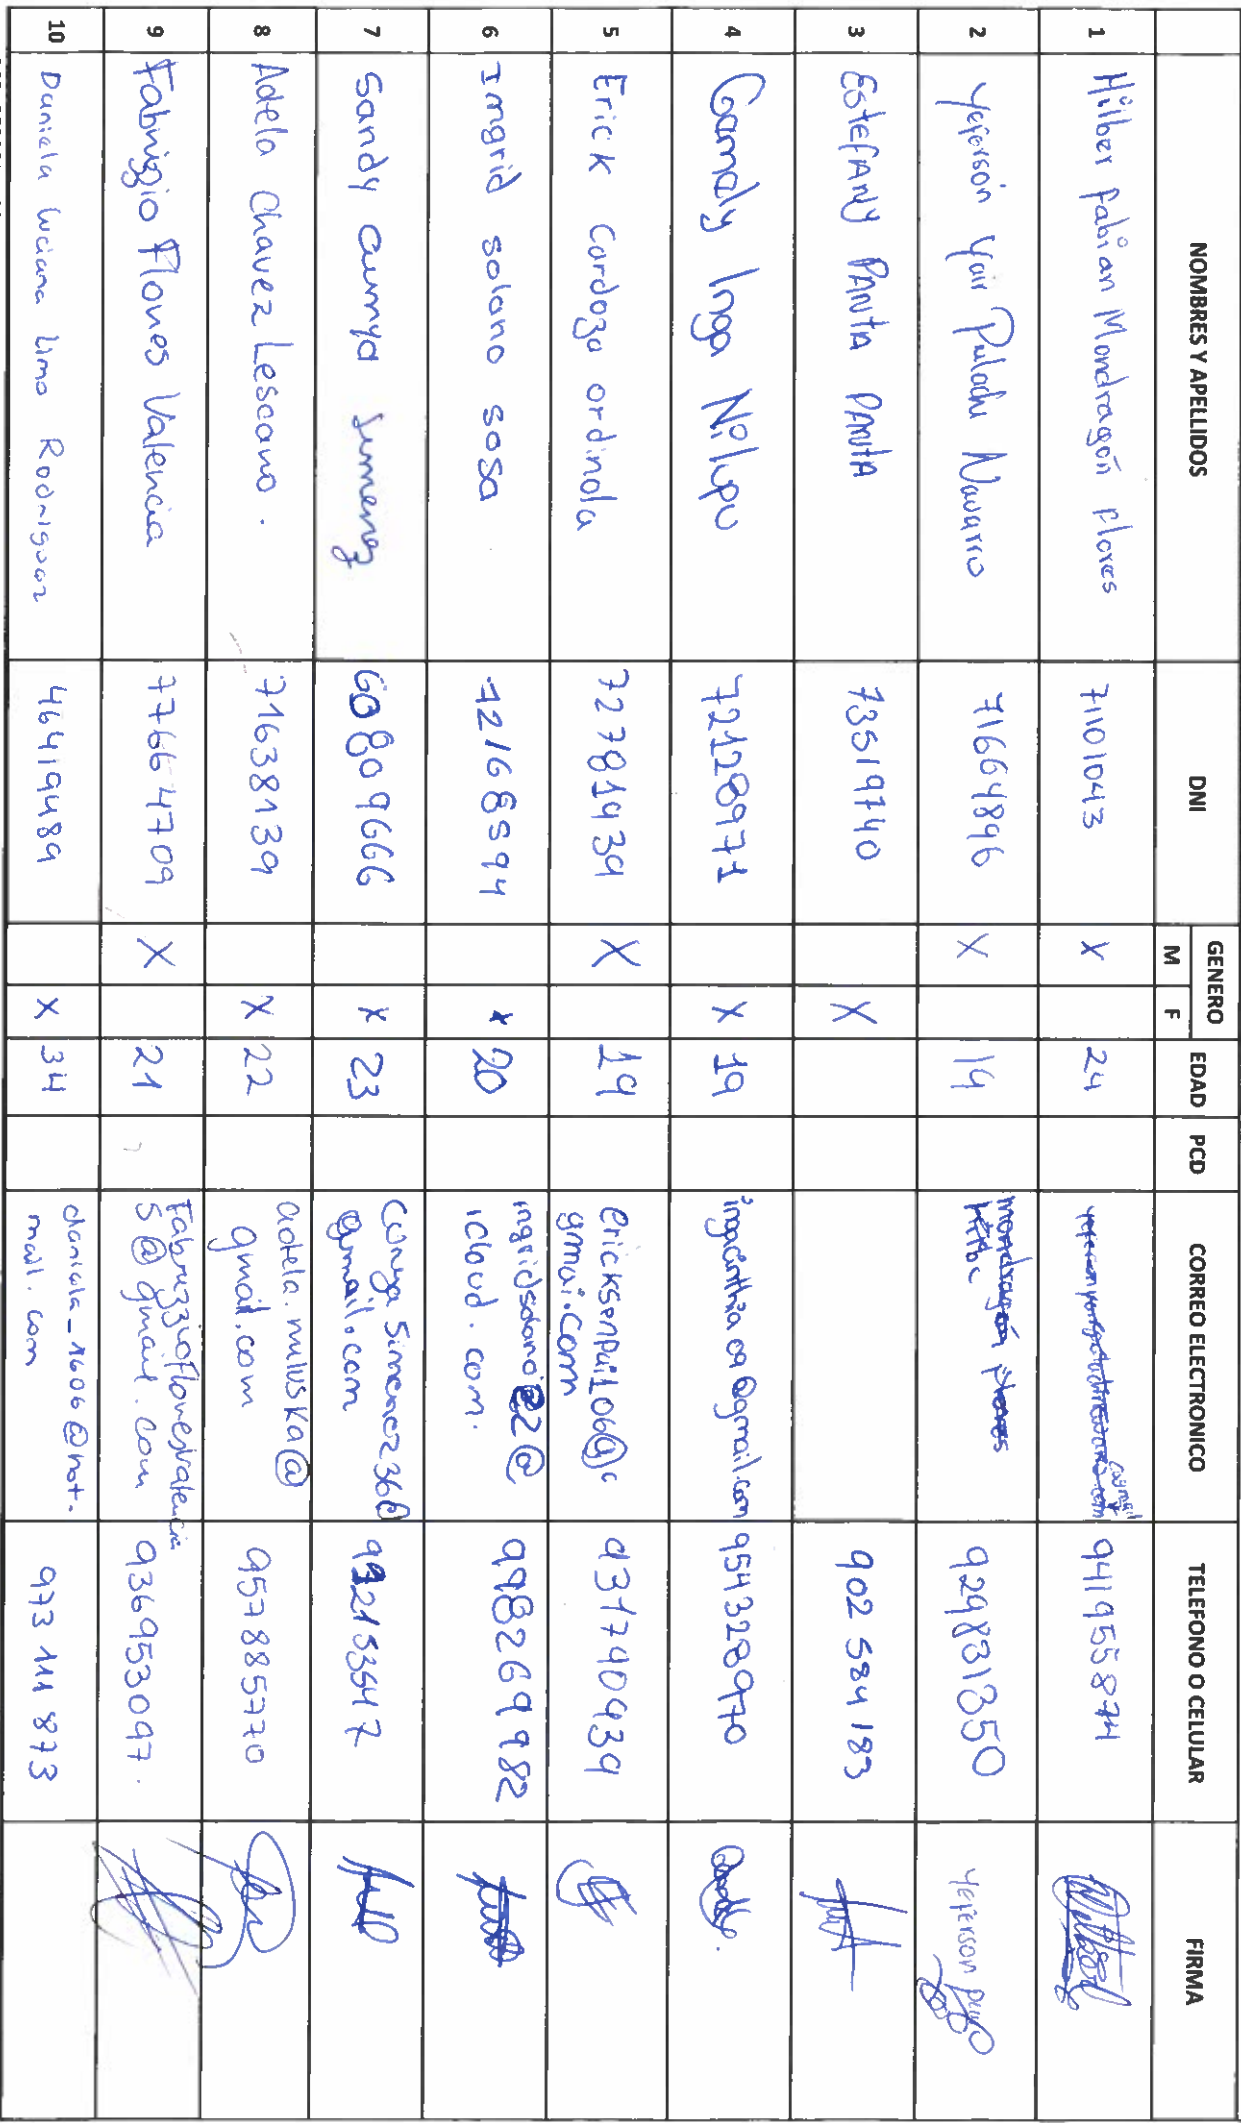 NOMBRES Y APELLIDOS DNI GENERO M F EDAD PCD CORREO ELECTRONICO TELEFONO O CELULAR FIRMA
1 Hilber fabian Mondragón Flores 71101043 X 24 941955874
2 Yeferson Yair Pulache Navarro 71664896 X 19 929831350 Yeferson
3 EstefANy PANtA PANtA 73519740 X 902 584 183
4 Gamaly Inga Nilupu 72128971 X 19 ingacinthia09@gmail.com 954328970
5 Erick Cardoza ordinola 72781939 X 19 ericksenpai106@
gmai.com 931790939
6 Imgrid solano sosa 72168594 X 20 ingridsolano22@
icloud.com. 998269982
7 Sandy cumya Jimenez 60809666 X 23 Cunya Simenez36@
gmail.com 932153547
8 Adela Chavez Lescano. 71638139 X 22 adela.miluska@
gmail.com 957885770
9 Fabrizio Flores Valencia 77664709 X 21 Fabrizziofloresvalencia
5@gmail.com 936953097.
10 Daniela Luciana Lima Rodriguez 46419489 X 34 daniela_1606@hot-
mail.com 973 111 873